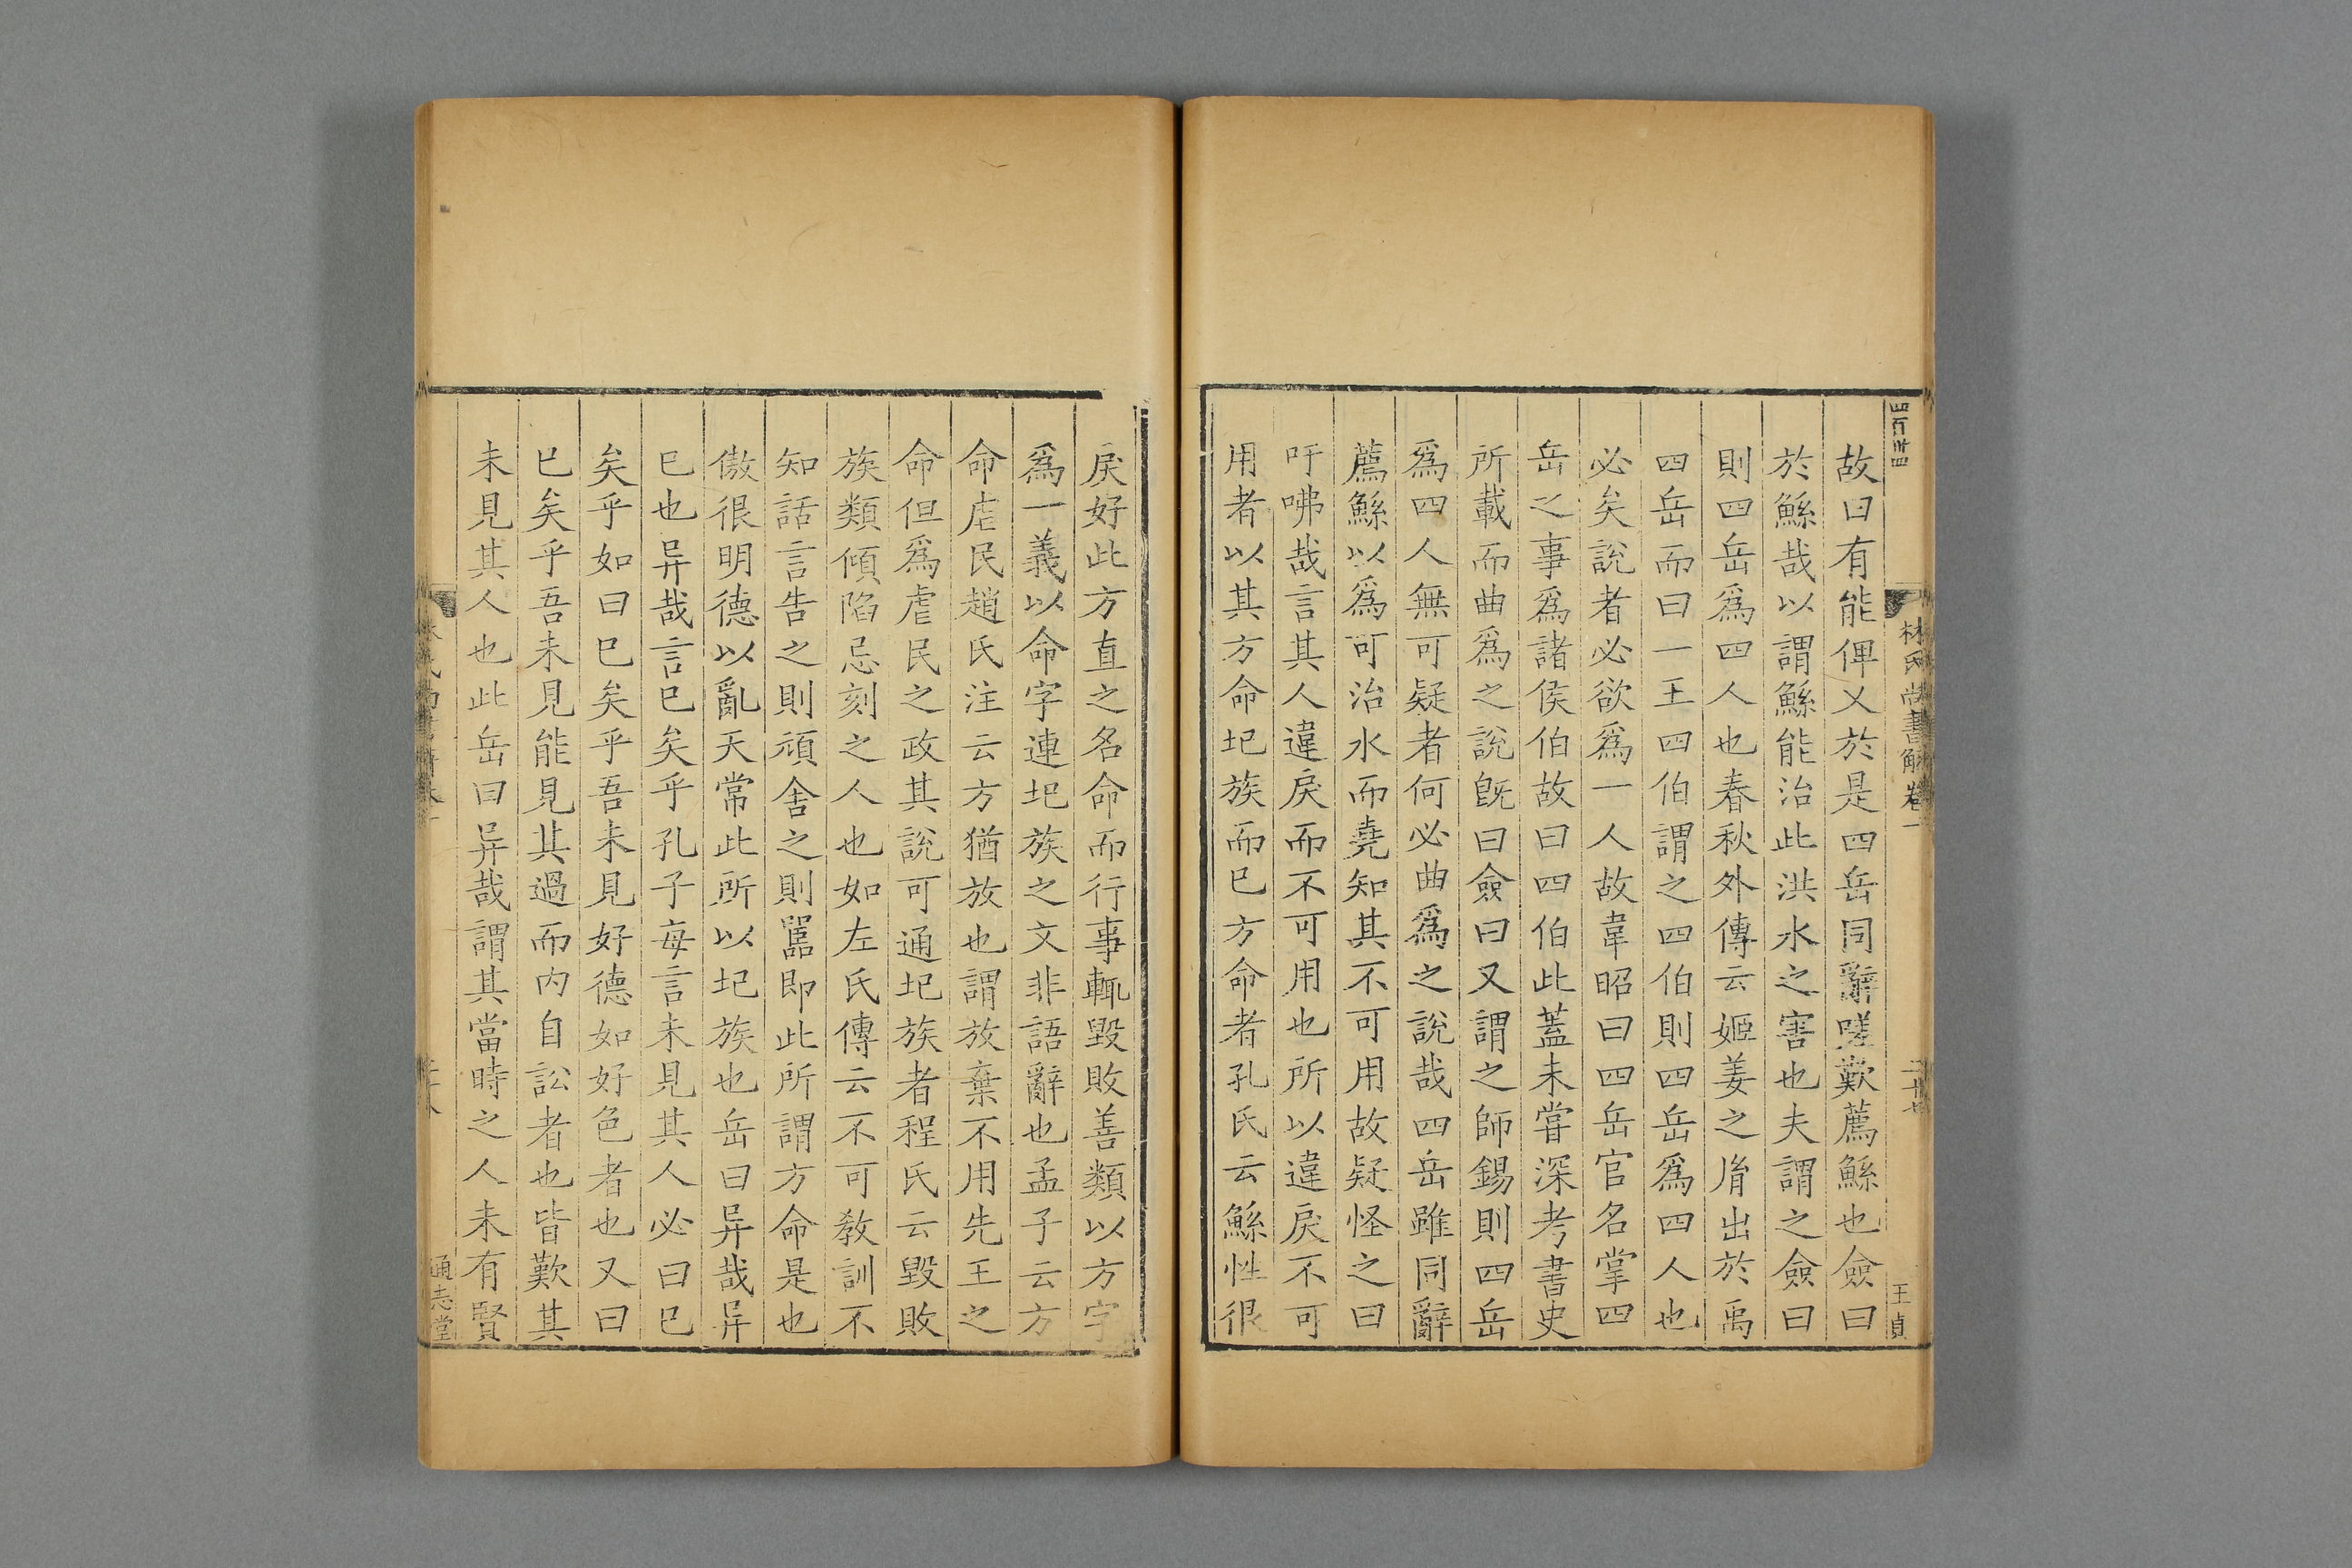 林氏尚書解卷一
王貞
故曰有能俾乂於是四岳同辭嗟歎薦鯀也僉曰
於鯀哉以謂鯀能治此洪水之害也夫謂之僉曰
則四岳爲四人也春秋外傳云姬姜之胄出於禹
四岳而曰一王四伯謂之四伯則四岳爲四人也
必矣說者必欲爲一人故韋昭曰四岳官名掌四
岳之事爲諸侯伯故曰四伯此蓋未甞深考書史
所載而曲爲之說旣曰僉曰又謂之師錫則四岳
爲四人無可疑者何必曲爲之說哉四岳雖同辭
薦鯀以爲可治水而堯知其不可用故疑怪之曰
吁咈哉言其人違戾而不可用也所以違戾不可
用者以其方命圮族而已方命者孔氏云鯀性很
戾好此方直之名命而行事輒毀敗善類以方字
爲一義以命字連圮族之文非語辭也孟子云方
命虐民趙氏注云方猶放也謂放棄不用先王之
命但爲虐民之政其說可通圮族者程氏云毀敗
族類傾陷忌刻之人也如左氏傳云不可教訓不
知話言告之則頑舍之則嚚即此所謂方命是也
傲很明德以亂天常此所以圮族也岳曰异哉异
已也异哉言已矣乎孔子每言未見其人必曰已
矣乎如曰已矣乎吾未見好德如好色者也又曰
已矣乎吾未見能見其過而內自訟者也皆歎其
未見其人也此岳曰异哉謂其當時之人未有賢
通志堂